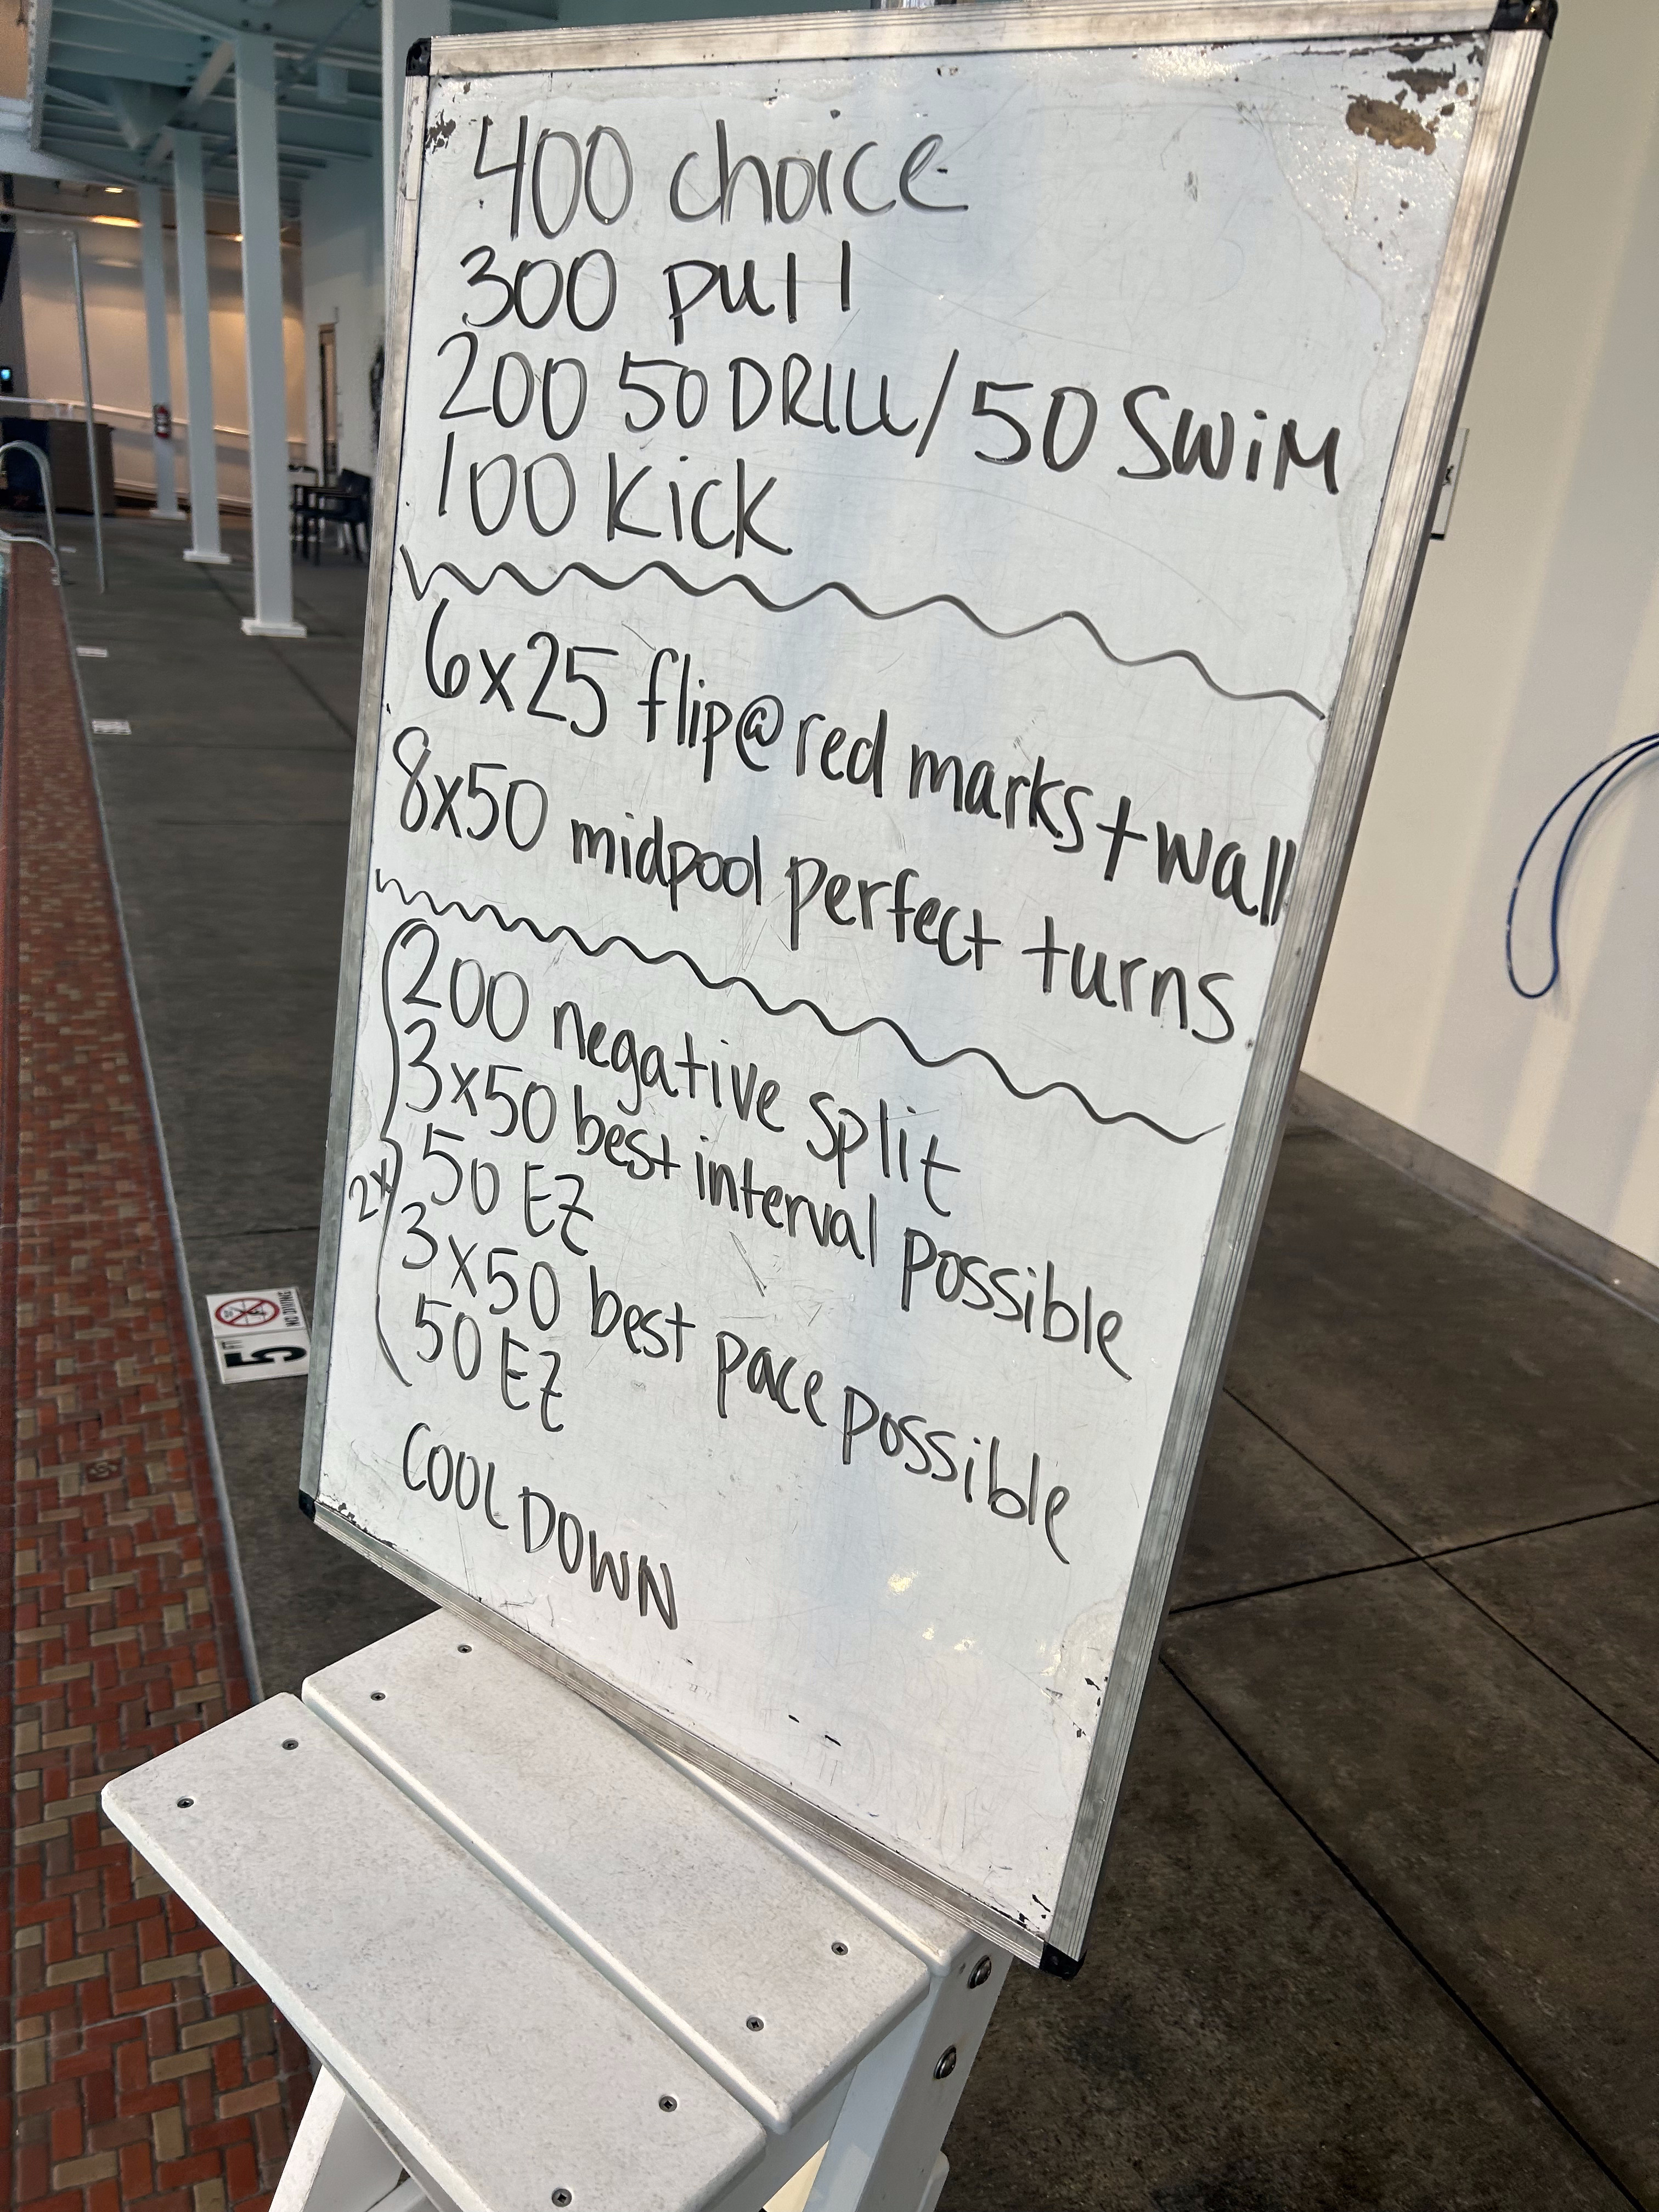 400 choice
300 pull
200 50 DRILL/50 SWiM
100 Kick
6x25 flip@red marks+wall
8x50 midpool perfect turns
200 negative split
3x50 best interval possible
2x
50 EZ
3x50 best pace possible
50 EZ
COOL DOWN
NO DIVING
5 FT